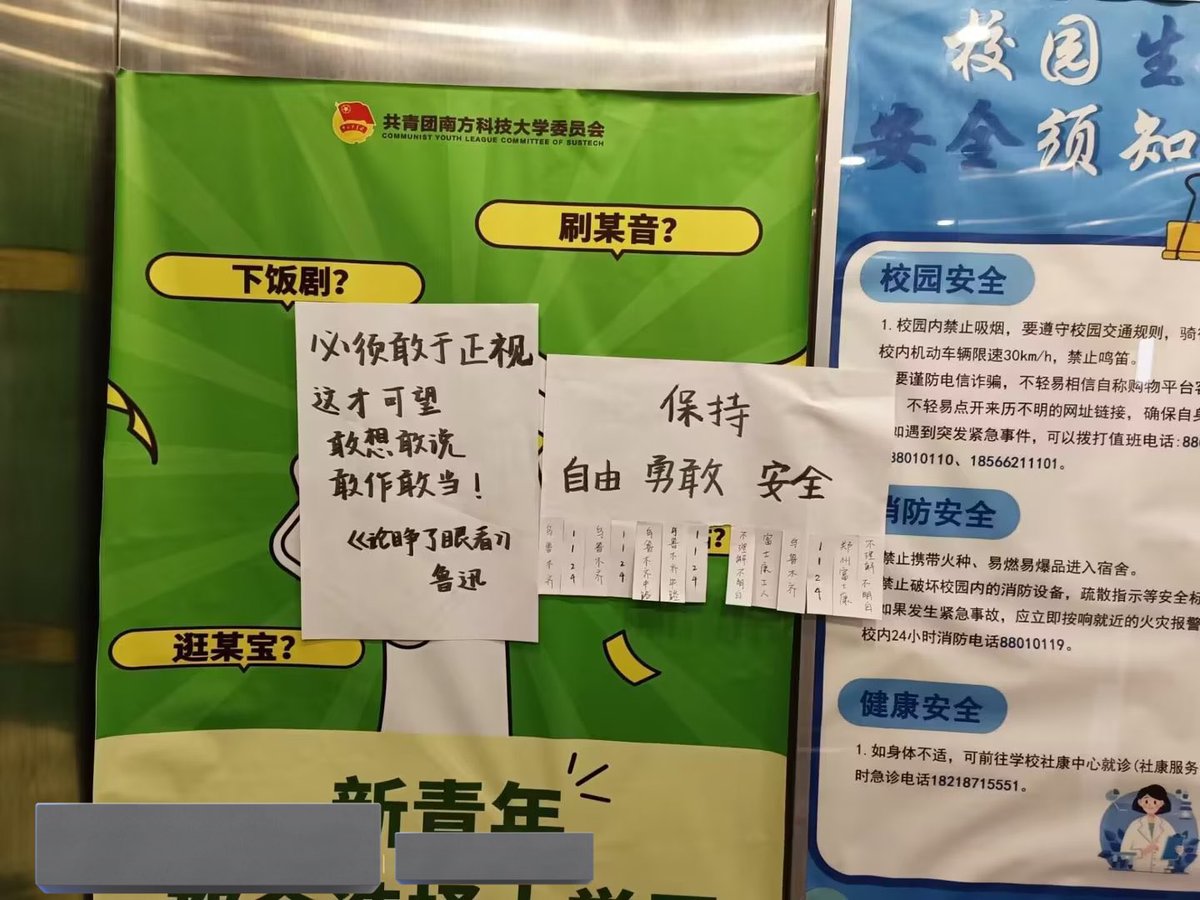 共青团南方科技大学委员会
COMMUNIST YOUTH LEAGUE COMMITTEE OF SUSTECH
刷某音?
下饭剧?
必须敢于正视
这才可望
敢想敢说
敢作敢当!
《论睁了眼看》
鲁迅
保持
自由 勇敢 安全
乌鲁木齐
1124
乌鲁木齐
1124
乌鲁木齐中路
乌鲁木齐中路
1124
不理解不明白
富士康工人
乌鲁木齐
1124
郑州富士康
不理解不明白
?
逛某宝?
新青年
校园生
安全须知
校园安全
1.校园内禁止吸烟,要遵守校园交通规则,骑
校内机动车辆限速30km/h,禁止鸣笛。
要谨防电信诈骗,不轻易相信自称购物平台客
不轻易点开来历不明的网址链接,确保自身
如遇到突发紧急事件,可以拨打值班电话:880
88010110、18566211101。
消防安全
禁止携带火种、易燃易爆品进入宿舍。
禁止破坏校园内的消防设备,疏散指示等安全标
如果发生紧急事故,应立即按响就近的火灾报警
校内24小时消防电话88010119。
健康安全
1.如身体不适,可前往学校社康中心就诊(社康服务
时急诊电话18218715551。